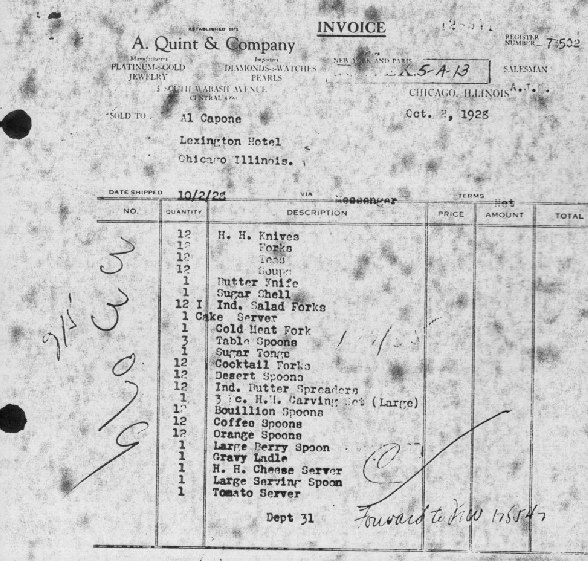 INVOICE
ESTABLISHED
A. Quint & Company
REGISTER NUMBER
Manufacturers Importers
PLATINUM & GOLD JEWELRY
DIAMONDS & WATCHES PEARLS
NEW YORK AND PARIS
R.5-A-13
SALESMAN
SOUTH WABASH AVENUE
CENTRAL
CHICAGO, ILLINOIS
SOLD TO Al Capone
Oct. 2, 1928
Lexington Hotel
Chicago Illinois.
DATE SHIPPED 10/2/28 VIA Messenger TERMS Net
NO. QUANTITY DESCRIPTION PRICE AMOUNT TOTAL
12 H. H. Knives
12 Forks
12 Teas
12 Soups
1 Butter Knife
1 Sugar Shell
12 I Ind. Salad Forks
1 Cake Server
1 Cold Meat Fork
3 Table Spoons
1 Sugar Tongs
12 Cocktail Forks
12 Desert Spoons
12 Ind. Butter Spreaders
1 3 pc. H.H. Carving Set (Large)
12 Bouillion Spoons
12 Coffee Spoons
12 Orange Spoons
1 Large Berry Spoon
1 Gravy Ladle
1 H. H. Cheese Server
1 Large Serving Spoon
1 Tomato Server
Dept 31
Forward to